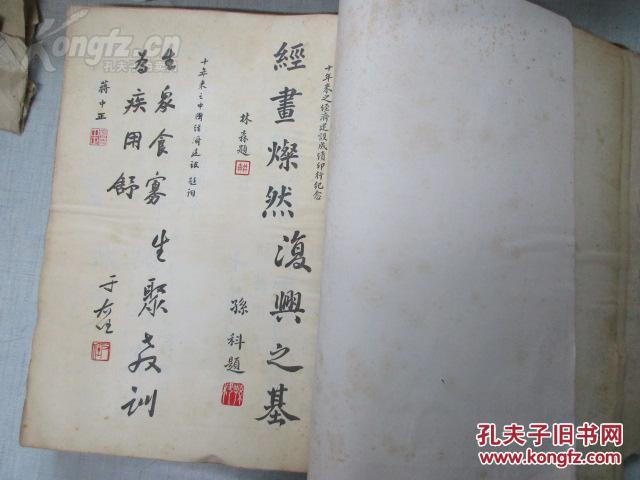 十年來之經濟建設成績印行紀念
經畫燦然
林森題
復興之基
孫科題
十年來之中國經濟建設 題詞
生眾食寡
為疾用舒
蔣中正
生聚教訓
于右任
Kongfz.com
孔夫子旧书网
孔夫子旧书网
www.kongfz.com